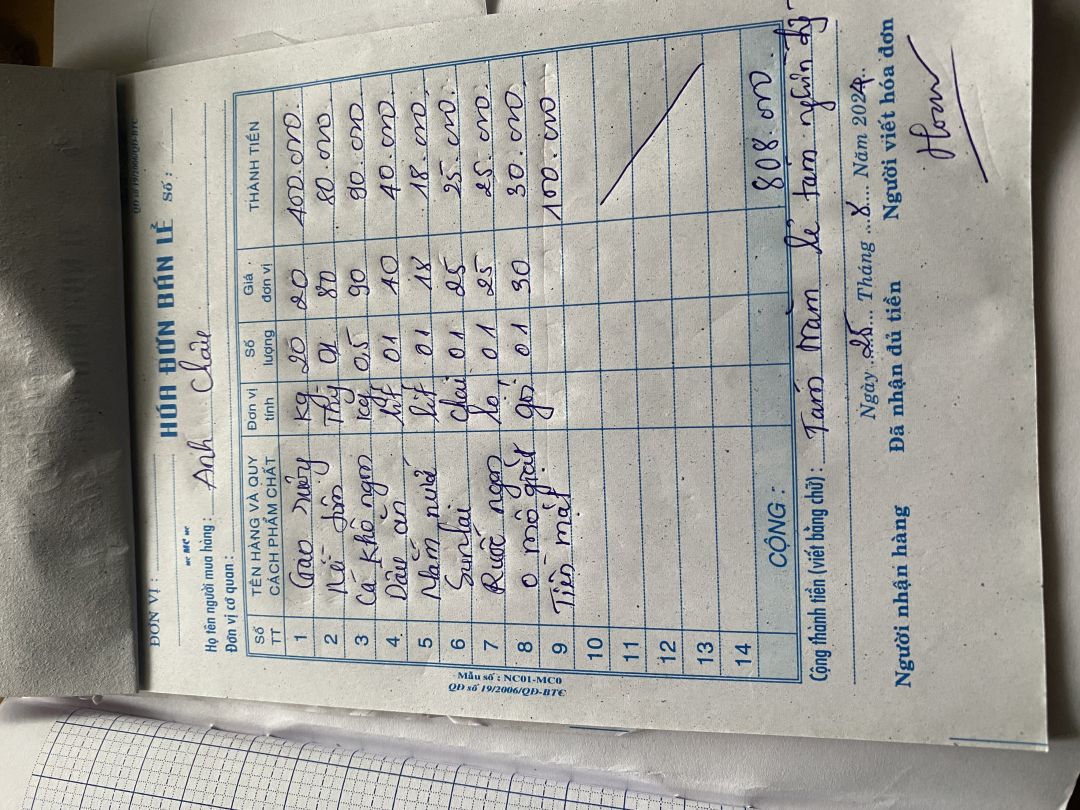 QĐ số 19/2006/QĐ-BTC
ĐƠN VỊ :
HÓA ĐƠN BÁN LẺ Số :
Họ tên người mua hàng : Anh Châu
Đơn vị cơ quan :
Số TT TÊN HÀNG VÀ QUY CÁCH PHẨM CHẤT Đơn vị tính Số lượng Giá đơn vị THÀNH TIỀN
1 Gạo kg 20 20 400.000
2 01 80 80.000
3 Cá khô ngon kg 0,5 90 90.000
4 Dầu ăn lít 01 40 40.000
5 Nắm lít 01 18 18.000
6 Sunlai chai 01 25 25.000
7 Ruốc ngon lọ 01 25 25.000
8 O mô giặt gói 01 30 30.000
9 Tiền mặt 100.000
10
11
12
13
14
CỘNG : 808.000
Cộng thành tiền (viết bằng chữ) : Tám trăm lẻ tám nghìn
Ngày 25 Tháng 8 Năm 2024
Người nhận hàng Đã nhận đủ tiền Người viết hóa đơn
Hoan
Mẫu số : NC01-MC0
QĐ số 19/2006/QĐ-BTC